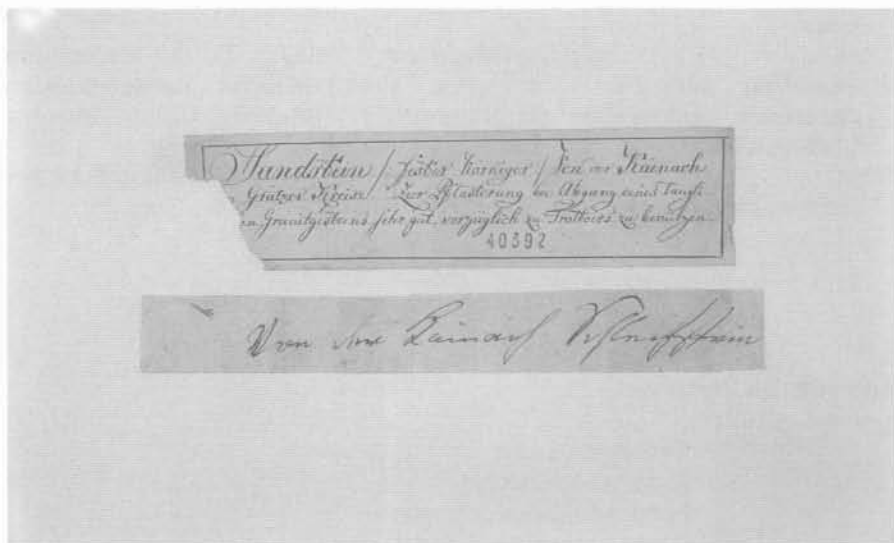 Sandstein / fester Körniger / Von der Kainach
Grätzer Kreise. Zur Pflasterung in Abgang eines taugli-
en Granitgesteins sehr gut, vorzüglich zu Trottoirs zu benützen.
40392
Von der Kainach Schleifstein